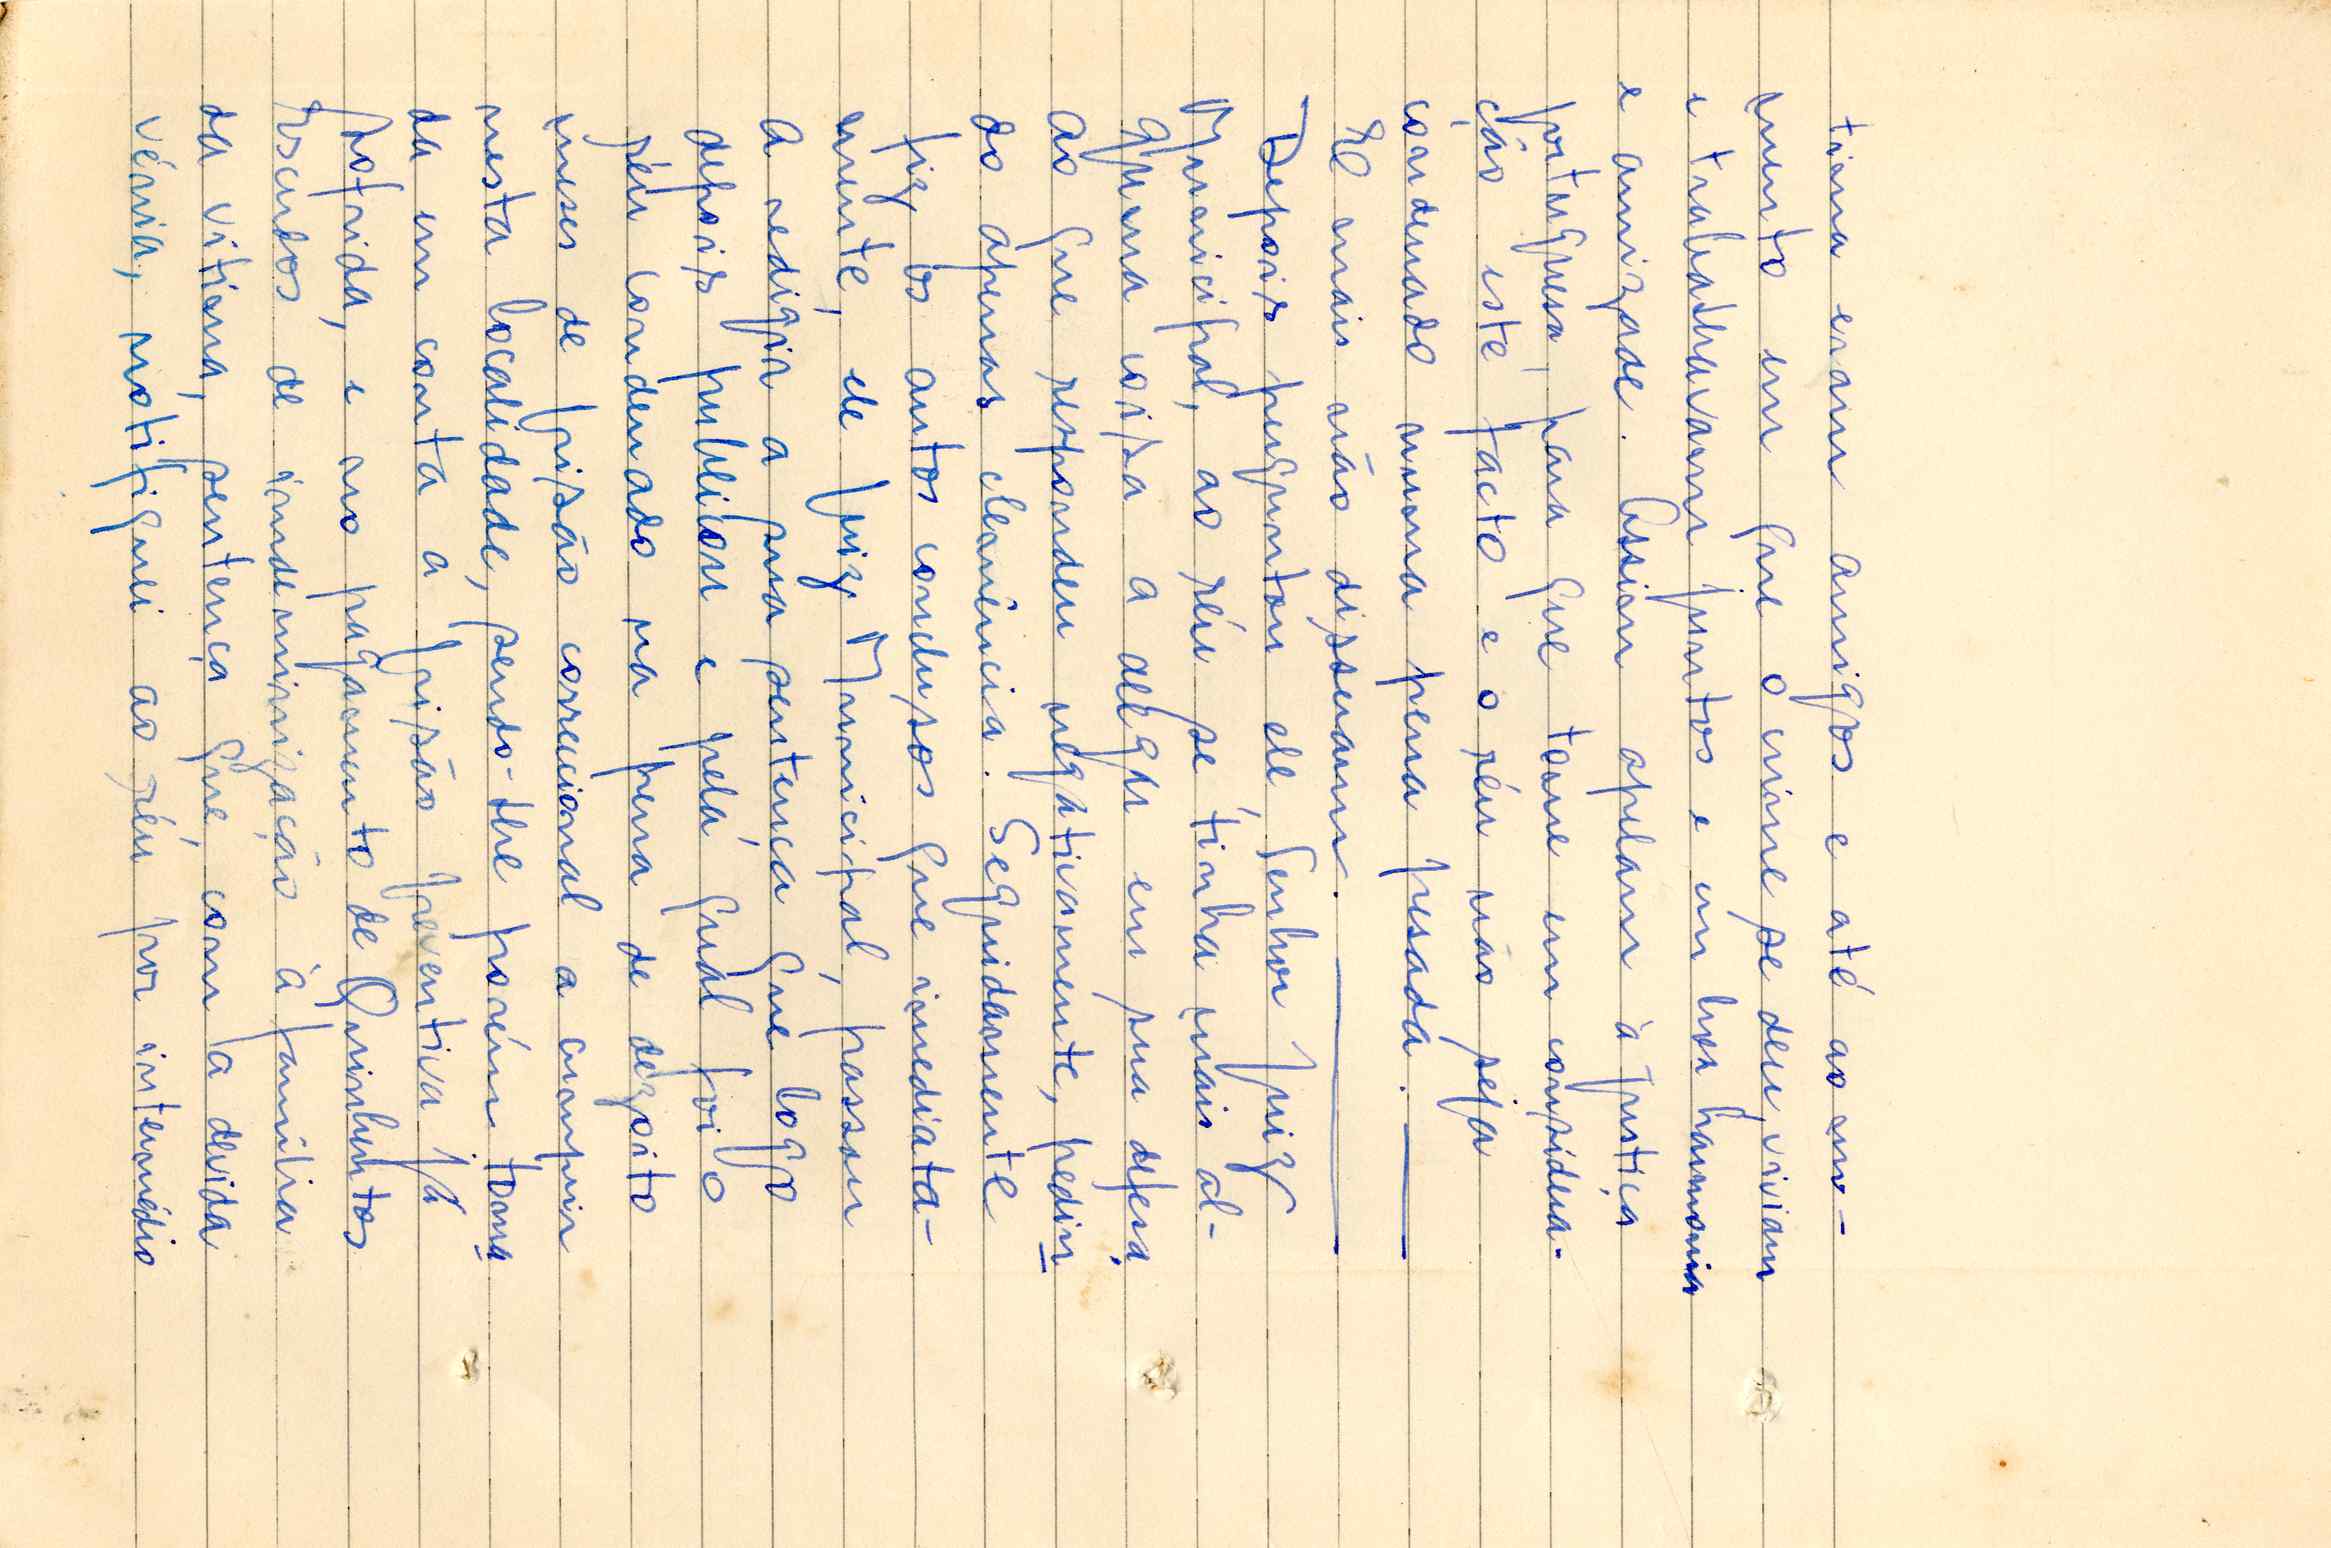 tima eram amigos e até ao mo-
mento em que o crime se deu, viviam
e trabalhavam juntos e em boa harmonia
e amizade. Assim apelam à justiça
portuguesa, para que tome em considera-
ção este facto e o réu não seja
condenado numa pena pesada.
E mais não disseram.
Depois perguntou ele Senhor Juiz
Municipal, ao réu se tinha mais al-
guma coisa a alegar em sua defesa
ao que respondeu negativamente, pedin
do apenas clemência. Seguidamente
fiz os autos conclusos que imediata-
mente, ele Juiz Municipal, passou
a redigir a sua sentença que logo
depois publicou e pela qual foi o
réu condenado na pena de dezoito
meses de prisão correccional a cumprir
nesta localidade, sendo-lhe porém toma
da em conta a prisão preventiva já
sofrida, e no pagamento de Quinhentos
Escudos de indemnização à família
da vítima, sentença que, com a devida
vénia, notifiquei ao réu por intermédio